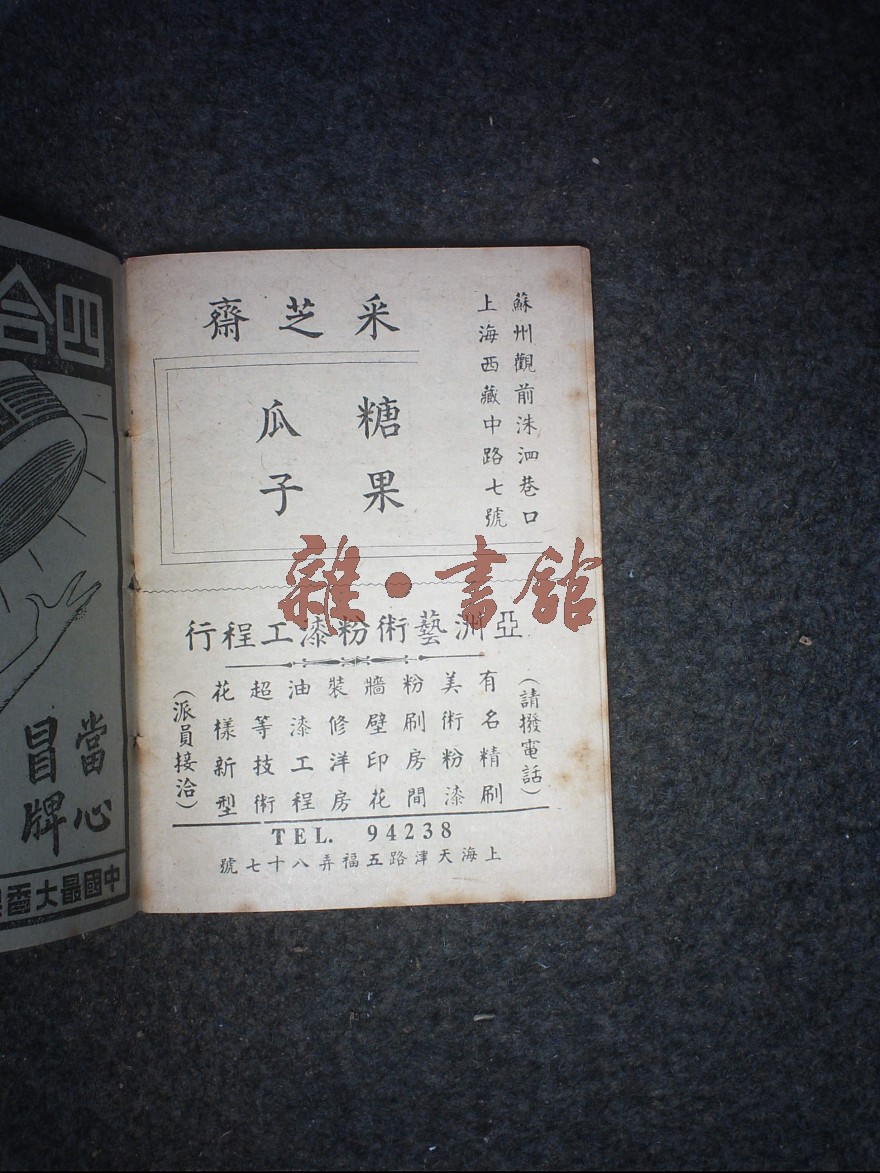 采芝齋
蘇州觀前洙泗巷口
上海西藏中路七號
糖果
瓜子
雜·書館
亞洲藝術粉漆工程行
(請撥電話)
有名精刷
美術粉漆
粉刷房間
牆壁印花
裝修洋房
油漆工程
超等技術
花樣新型
(派員接洽)
TEL. 94238
上海天津路五福弄八十七號
四合
當心
冒牌
中國最大香